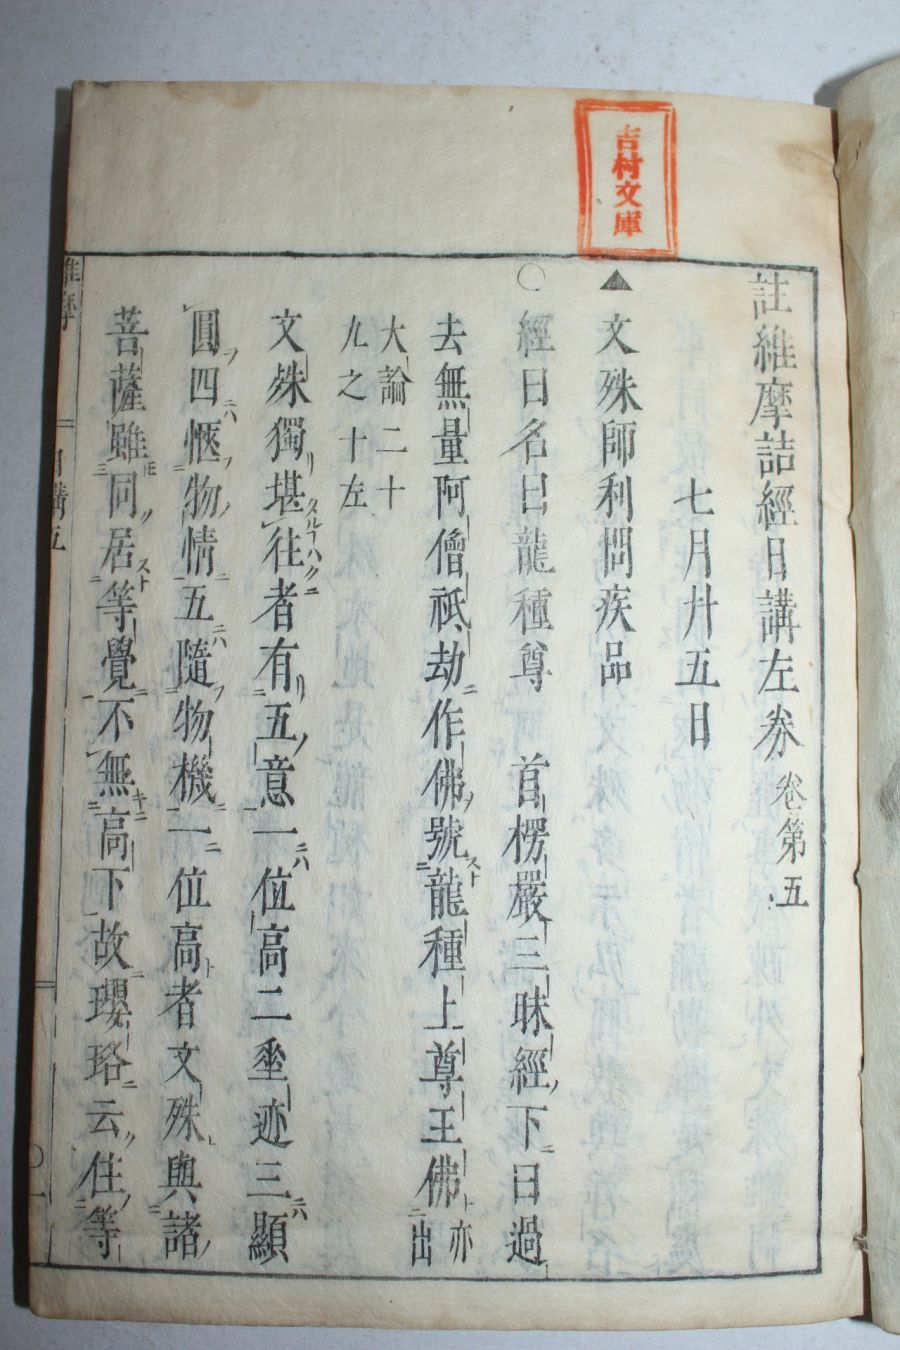 註維摩詰經日講左券 卷第五
七月廿五日
▲文殊師利問疾品
○經曰名曰龍種尊 首楞嚴三昧經下曰過
去無量阿僧祇劫作佛號龍種上尊王佛亦出
大論二十
九之十左
文殊獨堪往者有五意一位高二垂迹三顯
圓四愜物情五隨物機一位高者文殊與諸
菩薩雖同居等覺不無高下故瓔珞云住等
維摩
日講五
一
吉村文庫